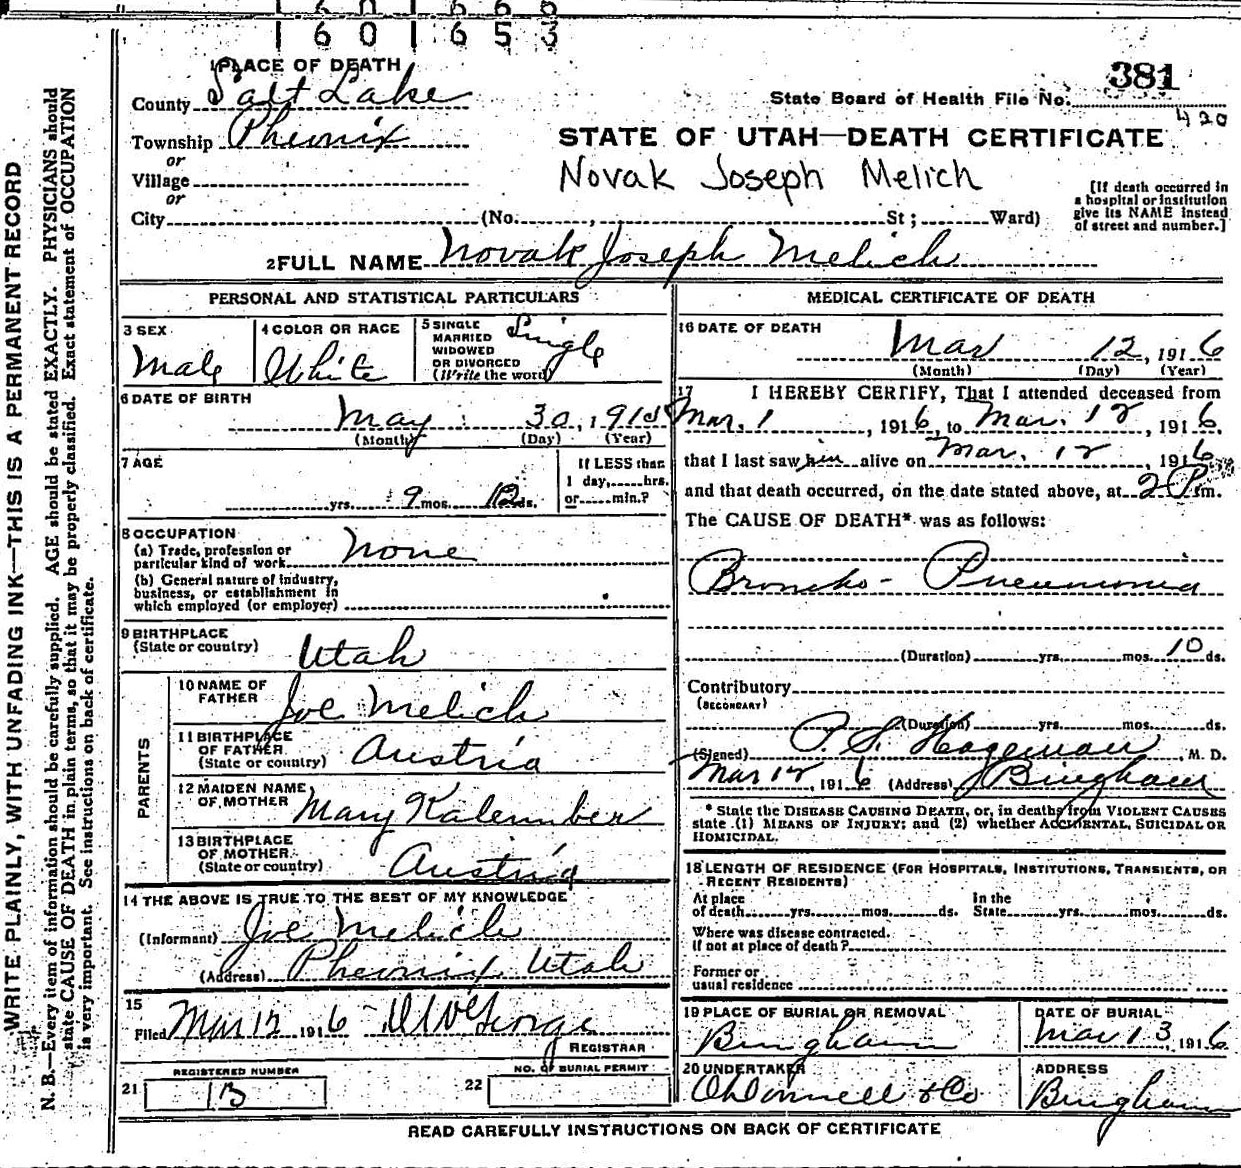 1601653
1 PLACE OF DEATH
County Salt Lake
Township Pheonix
or
Village
or
City (No. , St ; Ward)
381
State Board of Health File No.
420
STATE OF UTAH—DEATH CERTIFICATE
Novak Joseph Melich
[If death occurred in
a hospital or institution
give its NAME instead
of street and number.]
2 FULL NAME Novak Joseph Melich
PERSONAL AND STATISTICAL PARTICULARS
3 SEX
Male
4 COLOR OR RACE
White
5 SINGLE
MARRIED
WIDOWED
OR DIVORCED
(Write the word)
Single
6 DATE OF BIRTH
May 30, 1915
(Month) (Day) (Year)
7 AGE
yrs. 9 mos. 12 ds.
If LESS than
1 day, hrs.
or min.?
8 OCCUPATION
(a) Trade, profession or
particular kind of work
None
(b) General nature of industry,
business, or establishment in
which employed (or employer)
9 BIRTHPLACE
(State or country)
Utah
PARENTS
10 NAME OF
FATHER
Joe Melich
11 BIRTHPLACE
OF FATHER
(State or country)
Austria
12 MAIDEN NAME
OF MOTHER
Mary Kalember
13 BIRTHPLACE
OF MOTHER
(State or country)
Austria
14 THE ABOVE IS TRUE TO THE BEST OF MY KNOWLEDGE
(Informant) Joe Melich
(Address) Pheonix Utah
15
Filed Mar 12 1916
REGISTRAR
REGISTERED NUMBER
21 13
NO. OF BURIAL PERMIT
22
MEDICAL CERTIFICATE OF DEATH
16 DATE OF DEATH
Mar 12, 1916
(Month) (Day) (Year)
17 I HEREBY CERTIFY, That I attended deceased from
Mar. 1, 1916, to Mar. 12, 1916,
that I last saw him alive on Mar. 12, 1916
and that death occurred, on the date stated above, at 2 P m.
The CAUSE OF DEATH* was as follows:
Broncho- Pneumonia
(Duration) yrs. mos. 10 ds.
Contributory
(SECONDARY)
(Duration) yrs. mos. ds.
(Signed) P. S. Hageman, M. D.
Mar 12, 1916 (Address) Bingham
* State the DISEASE CAUSING DEATH, or, in deaths from VIOLENT CAUSES
state (1) MEANS OF INJURY; and (2) whether ACCIDENTAL, SUICIDAL OR
HOMICIDAL.
18 LENGTH OF RESIDENCE (FOR HOSPITALS, INSTITUTIONS, TRANSIENTS, OR
RECENT RESIDENTS)
At place
of death yrs. mos. ds.
In the
State yrs. mos. ds.
Where was disease contracted.
if not at place of death?
Former or
usual residence
19 PLACE OF BURIAL OR REMOVAL
Bingham
DATE OF BURIAL
Mar 13, 1916
20 UNDERTAKER
O'Donnell & Co
ADDRESS
Bingham
READ CAREFULLY INSTRUCTIONS ON BACK OF CERTIFICATE
WRITE PLAINLY, WITH UNFADING INK—THIS IS A PERMANENT RECORD
N. B.—Every item of information should be carefully supplied. AGE should be stated EXACTLY. PHYSICIANS should
state CAUSE OF DEATH in plain terms, so that it may be properly classified. Exact statement of OCCUPATION
is very important. See instructions on back of certificate.